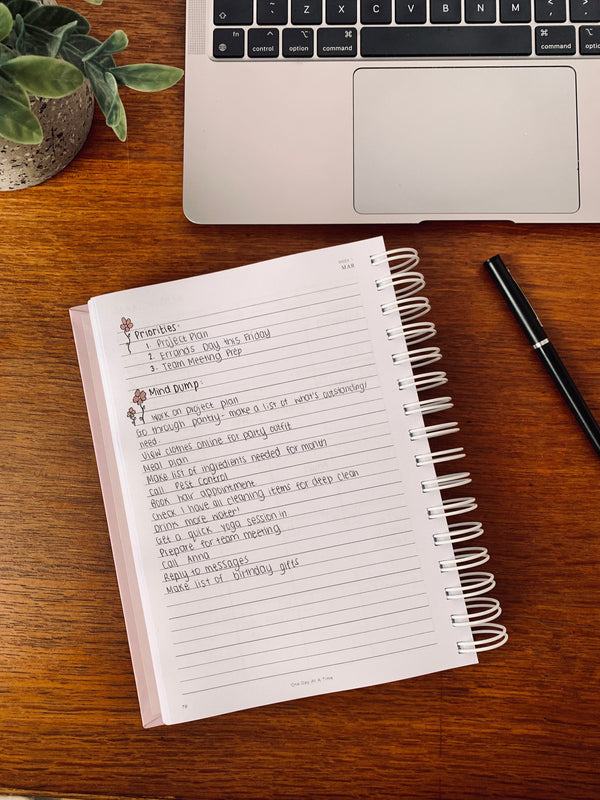 Z X C V B N M
fn control option command command option
WEEK 1
MAR
Priorities:
1. Project Plan
2. Errands Day this Friday
3. Team Meeting Prep
Mind Dump:
Work on project plan
Go through pantry - make a list of what's outstanding/
need.
View clothes online for party outfit
Meal plan
Make list of ingredients needed for month
Call Pest Control
Book hair appointment
Check I have all cleaning items for deep clean
Drink more water!
Get a quick yoga session in
Prepare for team meeting
Call Anna
Reply to messages
Make list of birthday gifts
One Day At A Time
78